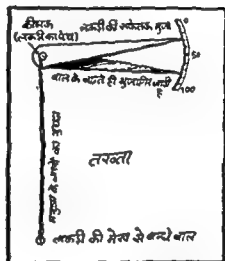 कीलक
(लकड़ी का पेच)
लकड़ी की संकेतक भुजा
0
50
100
बाल के बढ़ते ही भुजा गिर जाती है
मनुष्य के बालों का गुच्छा
तख्ता
लकड़ी की मेख से बन्धे बाल